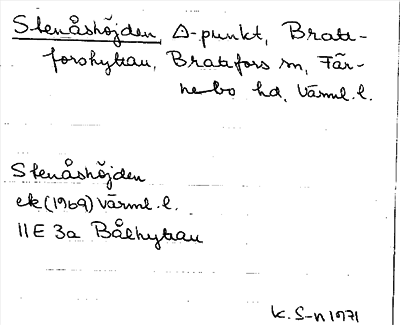 Stenåshöjden, △-punkt, Bratt-
forshyttan, Brattfors sn, Fär-
nebo hd, Värml. l.
Stenåshöjden
ek (1969) Värml. l.
11E 3a Bålhyttan
K. S-n 1971